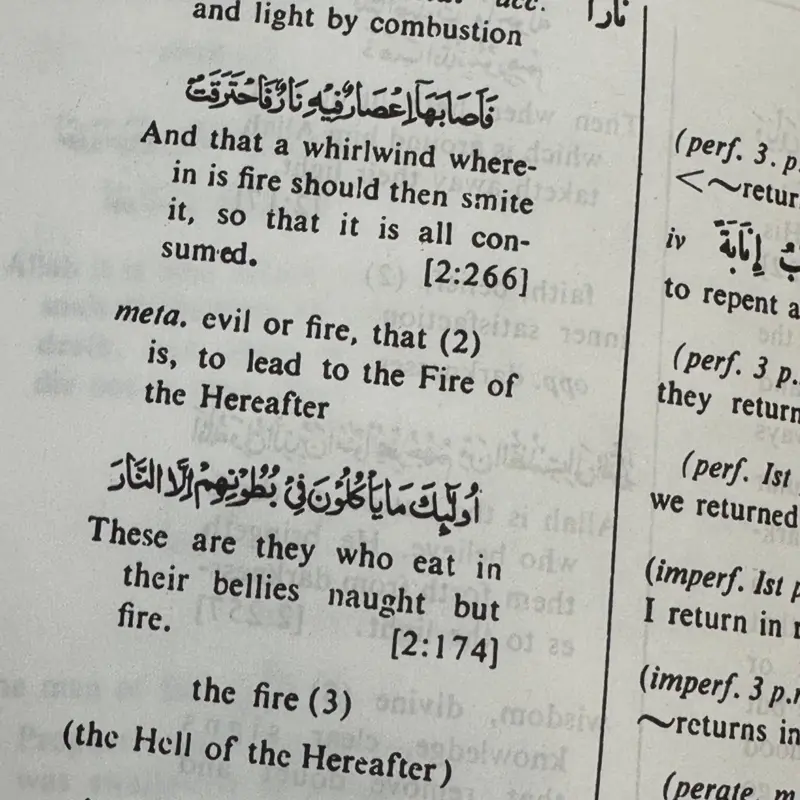 acc. نارا
and light by combustion
فَأَصَابَهَآ إِعْصَارٌ فِيهِ نَارٌ فَٱحْتَرَقَتْ
And that a whirlwind where-
in is fire should then smite
it, so that it is all con-
sumed. [2:266]
meta. evil or fire, that (2)
is, to lead to the Fire of
the Hereafter
أُولَٰٓئِكَ مَا يَأْكُلُونَ فِي بُطُونِهِمْ إِلَّا النَّارَ
These are they who eat in
their bellies naught but
fire. [2:174]
the fire (3)
(the Hell of the Hereafter)
(perf. 3. p.
<~retur
iv إِنَابَةً
to repent a
(perf. 3 p.
they return
(perf. Ist
we returned
(imperf. Ist p
I return in
(imperf. 3 p.
~returns in
(perate. m.